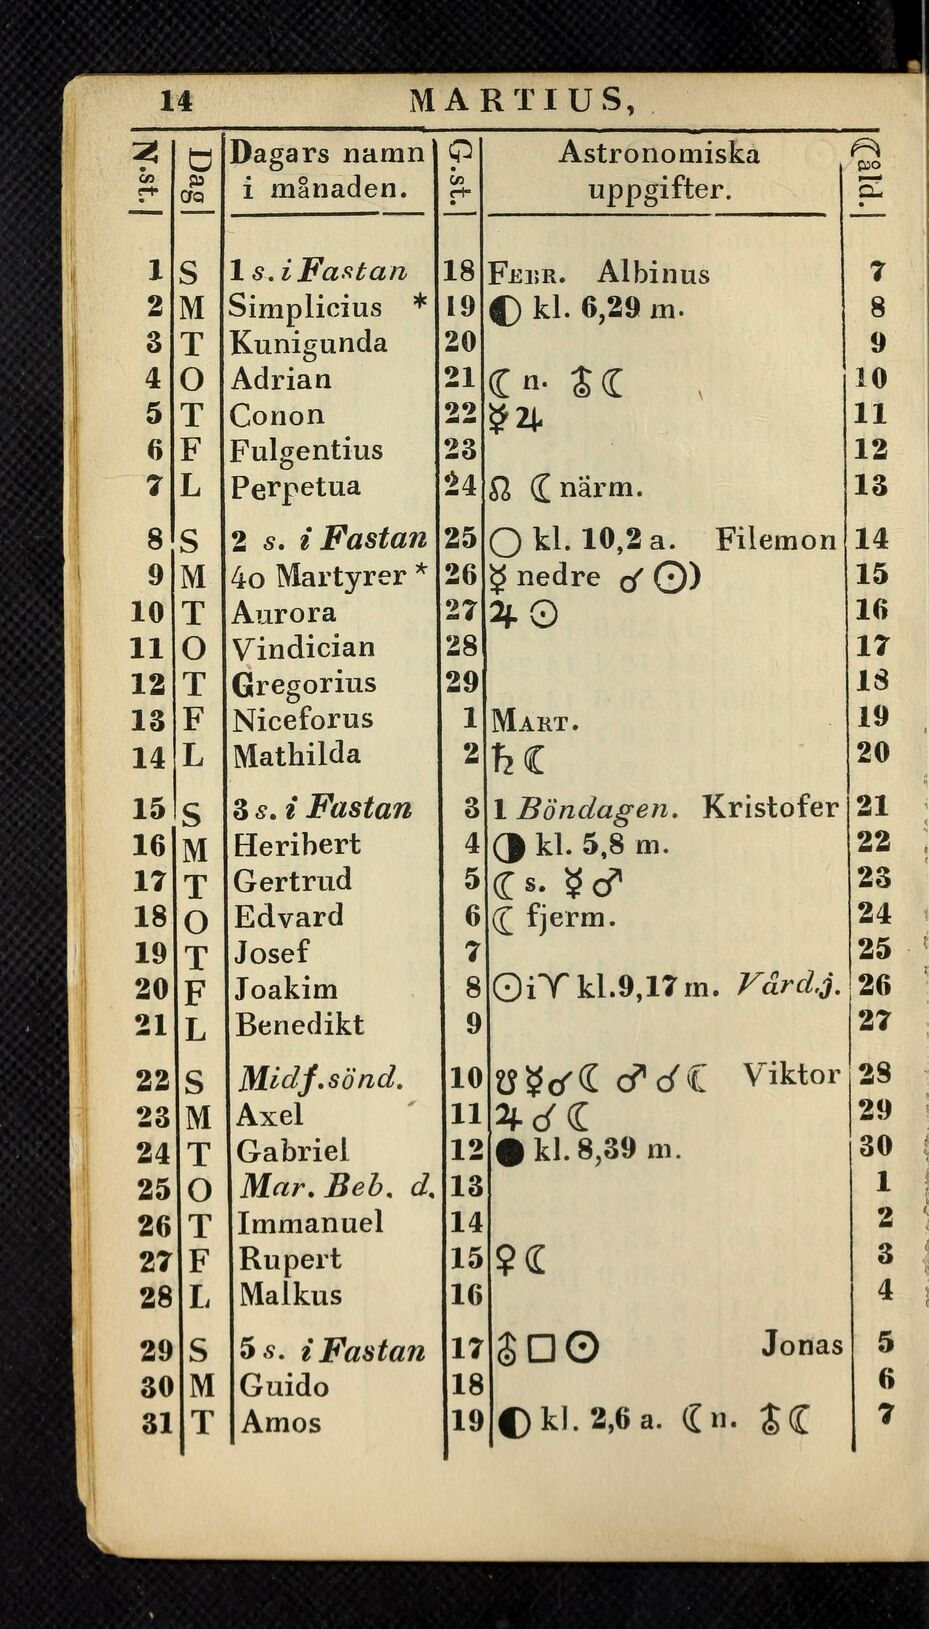 14 MARTIUS,
N.st. Dag Dagars namn i månaden. G.st. Astronomiska uppgifter. ☾åld.
1 S 1 s. i Fastan 18 FEBR. Albinus 7
2 M Simplicius * 19 ◐ kl. 6,29 m. 8
3 T Kunigunda 20 9
4 O Adrian 21 ☾ n. ⛢ ☾ 10
5 T Conon 22 ☿ ♃ 11
6 F Fulgentius 23 12
7 L Perpetua 24 ☊ ☾ närm. 13
8 S 2 s. i Fastan 25 ○ kl. 10,2 a. Filemon 14
9 M 40 Martyrer * 26 ☿ nedre ☌ ☉) 15
10 T Aurora 27 ♃ ☉ 16
11 O Vindician 28 17
12 T Gregorius 29 18
13 F Niceforus 1 MART. 19
14 L Mathilda 2 ♄ ☾ 20
15 S 3 s. i Fastan 3 1 Böndagen. Kristofer 21
16 M Heribert 4 ◑ kl. 5,8 m. 22
17 T Gertrud 5 ☾ s. ☿ ♂ 23
18 O Edvard 6 ☾ fjerm. 24
19 T Josef 7 25
20 F Joakim 8 ☉ i ♈ kl. 9,17 m. Vård.j. 26
21 L Benedikt 9 27
22 S Midf. sönd. 10 ☋ ☿ ☌ ☾ ♂ ☌ ☾ Viktor 28
23 M Axel 11 ♃ ☌ ☾ 29
24 T Gabriel 12 ● kl. 8,39 m. 30
25 O Mar. Beb. d. 13 1
26 T Immanuel 14 2
27 F Rupert 15 ♀ ☾ 3
28 L Malkus 16 4
29 S 5 s. i Fastan 17 ⛢ □ ☉ Jonas 5
30 M Guido 18 6
31 T Amos 19 ◐ kl. 2,6 a. ☾ n. ⛢ ☾ 7